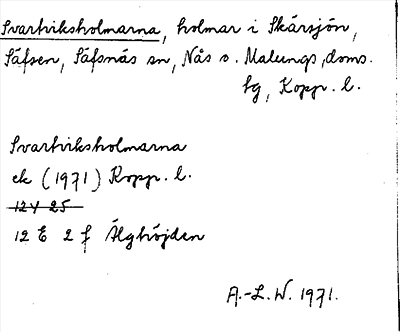 Svartviksholmarna, holmar i Skärsjön,
Säfsen, Säfsnäs sn, Nås o. Malungs doms.
sg, Kopp. l.
Svartviksholmarna
ek (1971) Kopp. l.
12 Y 25
12 E 2 f Älghöjden
A.-L. W. 1971.